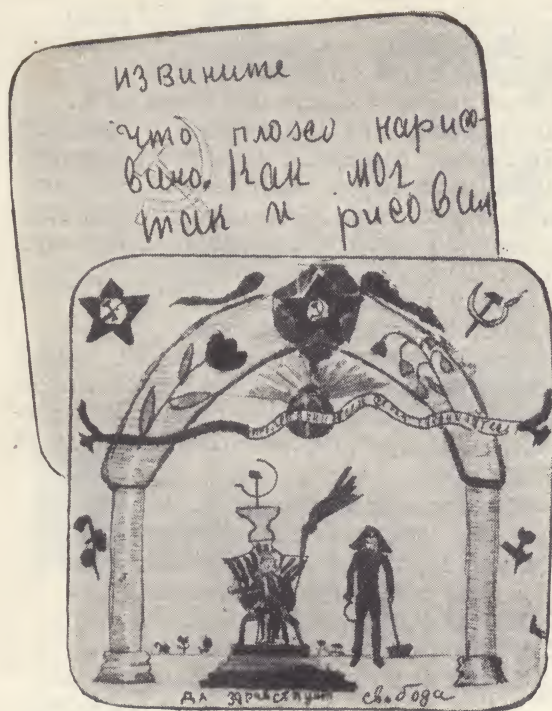 извините
что плохо нарисо-
вано. Как мог
так и рисовал
да здравствует свобода